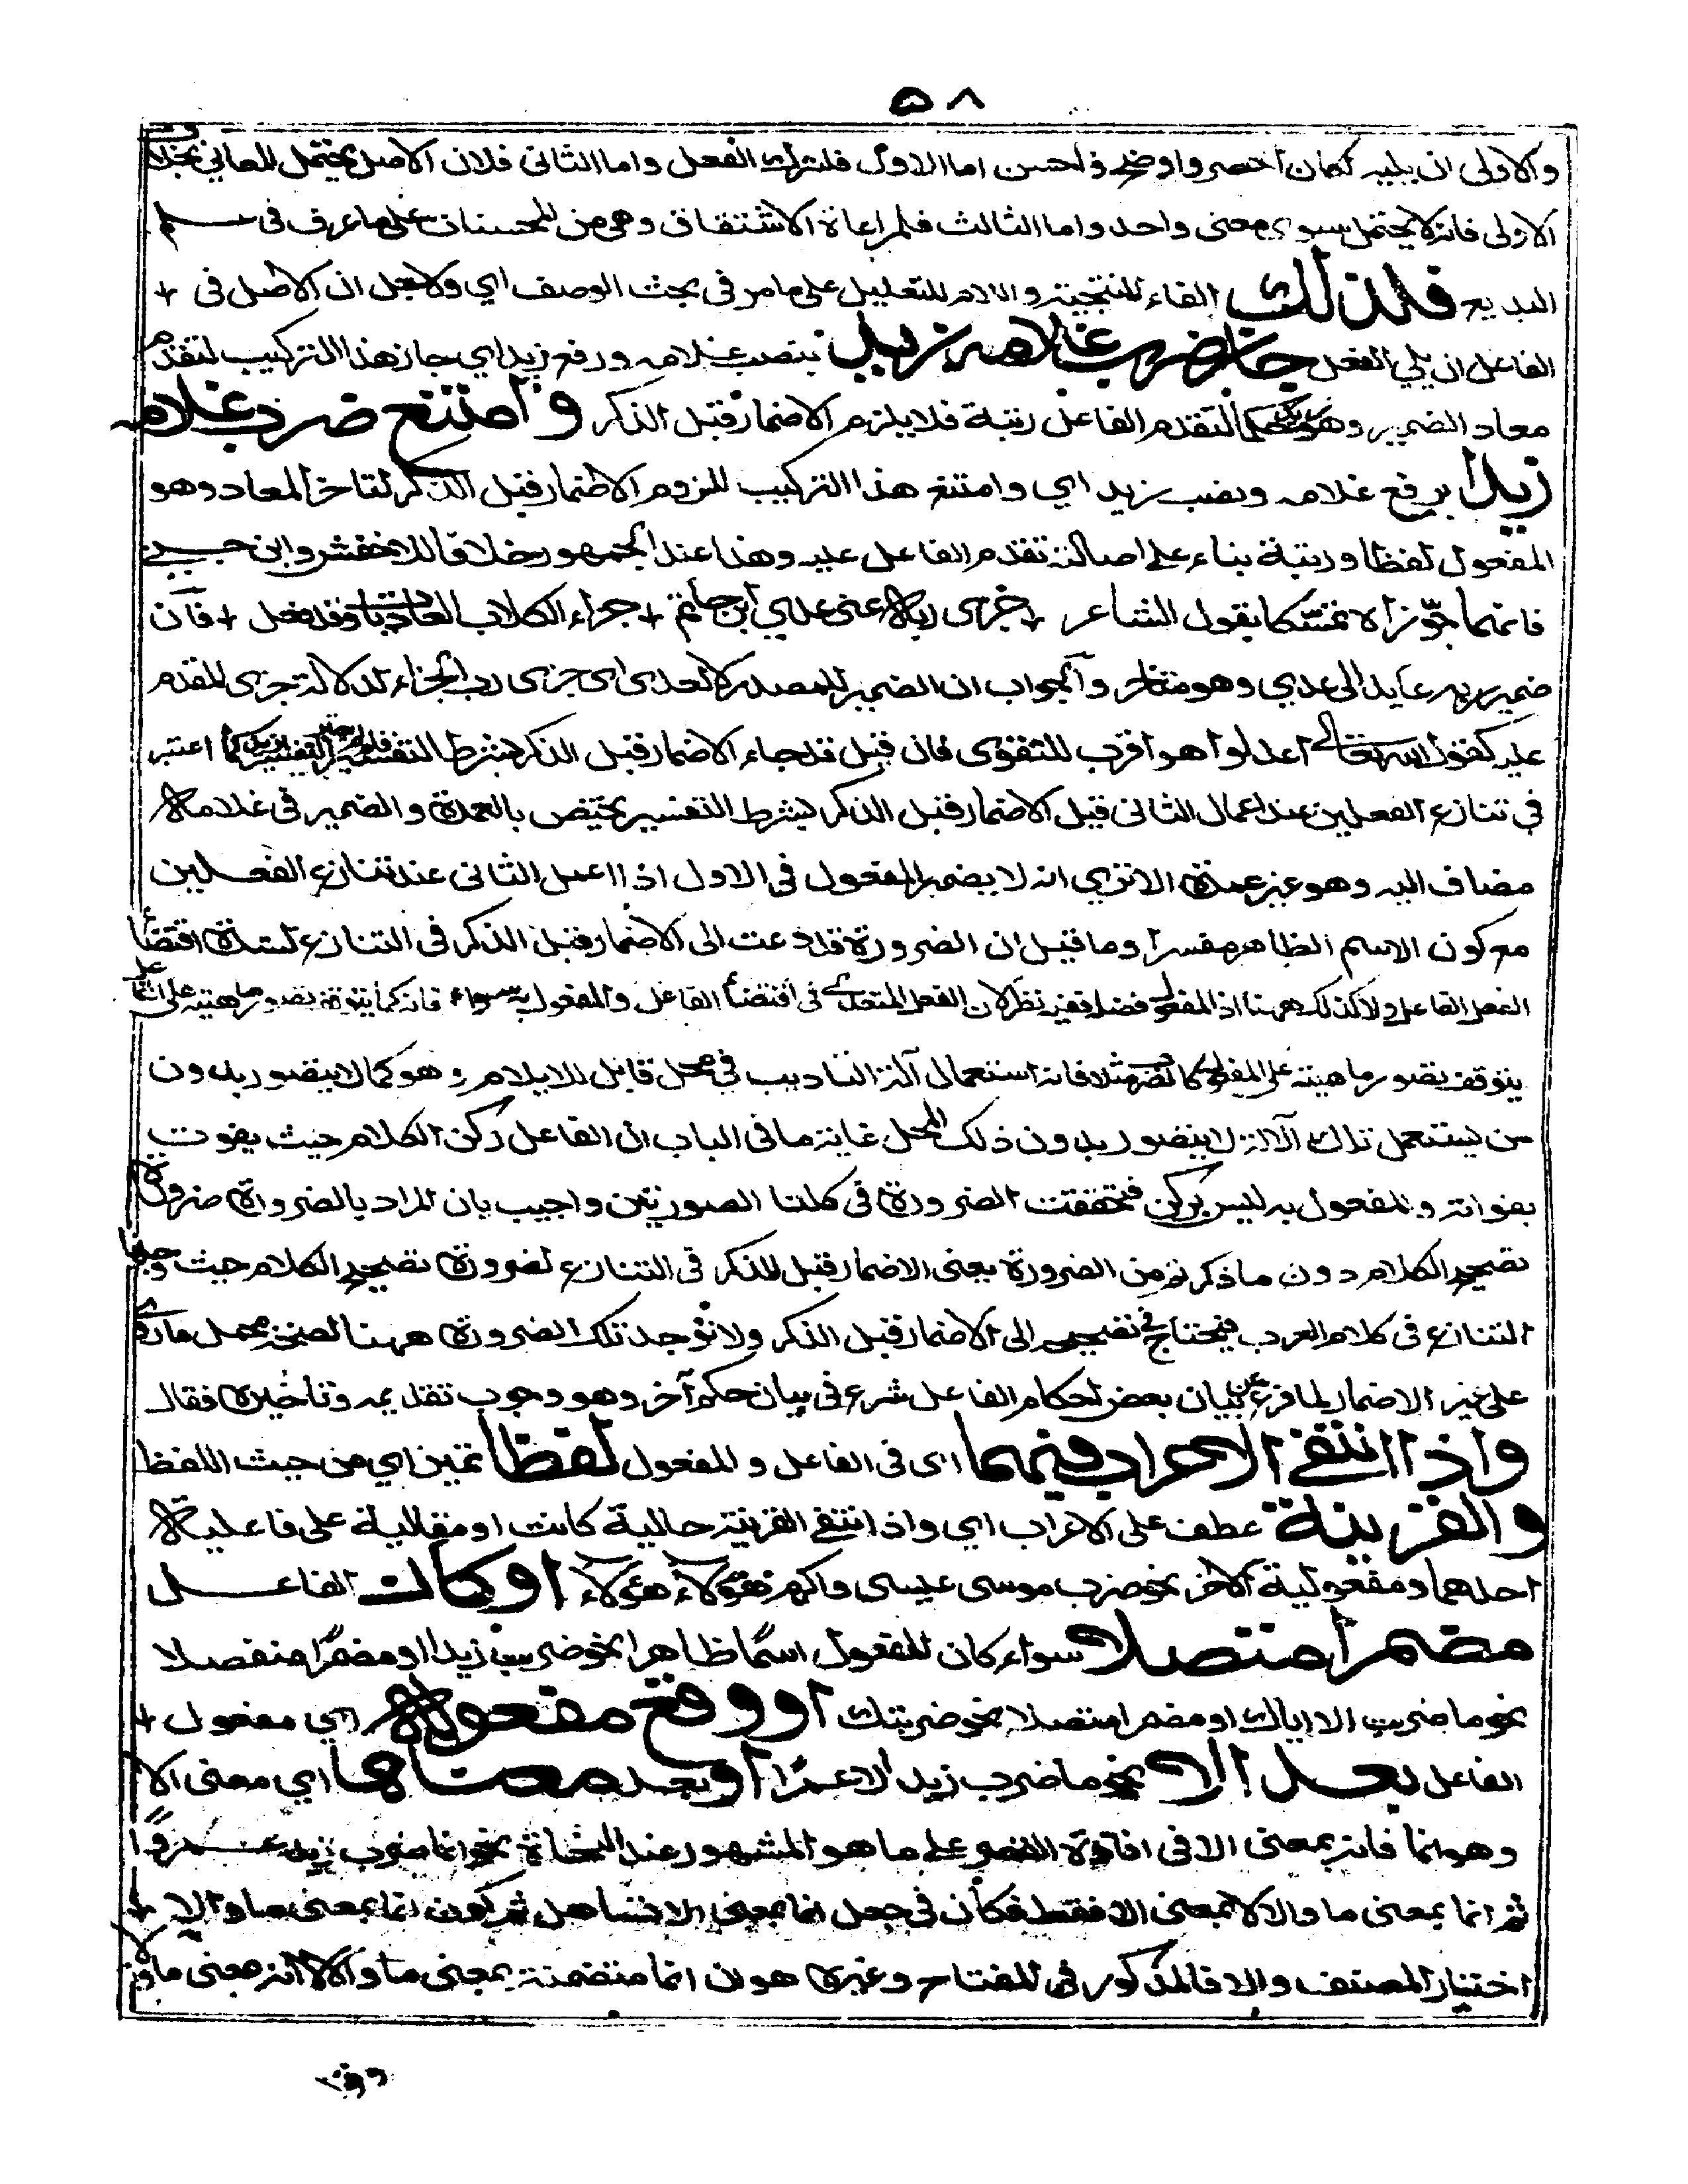 ٥٨
والاولى ان يليه لكان اخصر واوضح واحسن اما الاول فلترك الفعل واما الثانى فلان الاصل يحتمل المعاني بخلاف
الاولى فانه لا يحتمل سوى معنى واحد واما الثالث فلمراعاة الاشتقاق وهى من المحسنات على ما عرف فى علم
البديع فلذلك الفاء للنتيجية واللام للتعليل على ما مر فى بحث الوصف اي ولاجل ان الاصل فى
الفاعل ان يلي الفعل جاز ضرب غلامه زيد بنصب غلامه ورفع زيد اي جاز هذا التركيب لتقدم
معاد الضمير وهو زيد حكما لتقدم الفاعل رتبة فلا يلزم الاضمار قبل الذكر وامتنع ضرب غلامه
زيدا برفع غلامه ونصب زيد اي وامتنع هذا التركيب للزوم الاضمار قبل الذكر لتاخر المعاد وهو
المفعول لفظا ورتبة بناء على اصالة تقدم الفاعل عليه وهذا عند الجمهور خلافا للاخفش وابن جني
فانهما جوّزاه تمسّكا بقول الشاعر + جزى ربه عنى عدي ابن حاتم + جزاء الكلاب العاديات وقد فعل + فان
ضمير ربه عايد الى عدي وهو متاخر والجواب ان الضمير للمصدر لا لعدى اى جزى رب الجزاء لدلالة جزى المقدم
عليه كقول الله تعالى اعدلوا هو اقرب للتقوى فان قيل قد جاء الاضمار قبل الذكر بشرط التفسير كما اعتبر
في تنازع الفعلين عند اعمال الثانى قيل الاضمار قبل الذكر بشرط التفسير يختص بالعمدة والضمير فى غلامه
مضاف اليه وهو غير عمدة الا ترى انه لا يضمر المفعول فى الاول اذا اعمل الثانى عند تنازع الفعلين
مع كون الاسم الظاهر مفسرا وما قيل ان الضرورة قد دعت الى الاضمار قبل الذكر فى التنازع لشدة اقتضاء
الفعل الفاعل ولا كذلك ههنا اذ المفعول فضلة ففيه نظر لان الفعل المتعدي فى اقتضاء الفاعل والمفعول به سواء فانه كما يتوقف تصور ماهيته على الفاعل
يتوقف تصور ماهيته على المفعول كالضرب مثلا فانه استعمال آلة التاديب في محل قابل للايلام وهو كما لا يتصور بدون
من يستعمل تلك الآلة لا يتصور بدون ذلك المحل غاية ما فى الباب ان الفاعل ركن الكلام حيث يفوت
بفواته والمفعول به ليس بركن فتحققت الضرورة فى كلتا الصورتين واجيب بان المراد بالضرورة ضرورة
تصحيح الكلام دون ما ذكرته من الضرورة يعنى الاضمار قبل الذكر فى التنازع لضرورة تصحيح الكلام حيث وجد
التنازع فى كلام العرب فيحتاج فى تصحيحه الى الاضمار قبل الذكر ولا توجد تلك الضرورة ههنا لصحة محمل ما
على غير الاضمار لما فرغ عن بيان بعض احكام الفاعل شرع فى بيان حكم آخر وهو وجوب تقديمه وتاخيره فقال
واذا انتفى الاعراب فيهما اى فى الفاعل والمفعول لفظا تمييز اي من حيث اللفظ
والقرينة عطف على الاعراب اي واذا انتفى القرينة حالية كانت او مقالية على فاعلية
احدهما ومفعولية الآخر نحو ضرب موسى عيسى واكرم هؤلاء هؤلاء او كان الفاعل
مضمرا متصلا سواء كان المفعول اسمًا ظاهرا نحو ضربت زيدا او مضمرًا منفصلا
نحو ما ضربت الا اياك او مضمرا متصلا نحو ضربتك او وقع مفعوله اي مفعول +
الفاعل بعد الا نحو ما ضرب زيد الا عمرًا او بعد معناها اي معنى الا
وهو انما فانه بمعنى الا فى افادة القصر على ما هو المشهور عند النحاة نحو انما ضرب زيد عمروًا
ثم انما بمعنى ما والا لا بمعنى الا فقط فكان فى جعل انما بمعنى الا تساهل ثم كون انما بمعنى ما والا +
اختيار المصنف والا فالمذكور فى المفتاح وغيره هو ان انما متضمنة بمعنى ما والا لا انه بمعنى ما والا